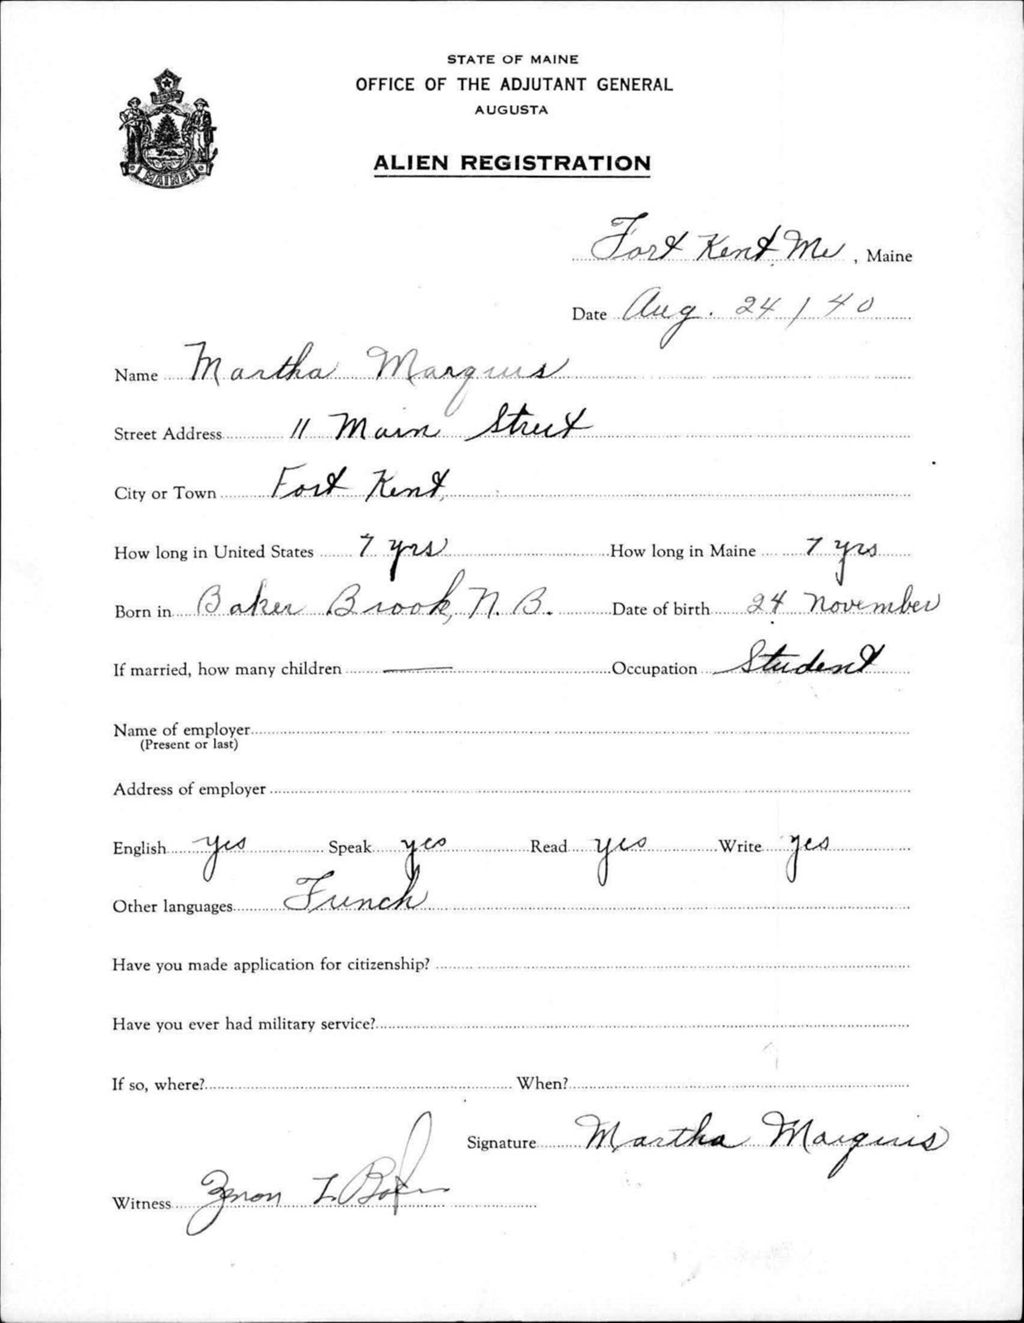 STATE OF MAINE
OFFICE OF THE ADJUTANT GENERAL
AUGUSTA
MAINE
ALIEN REGISTRATION
Fort Kent, Me, Maine
Date Aug. 24 / 40
Name Martha Marquis
Street Address 11 Main Street
City or Town Fort Kent,
How long in United States 7 yrs How long in Maine 7 yrs
Born in Baker Brook, N. B. Date of birth 24 November
If married, how many children — Occupation Student
Name of employer
(Present or last)
Address of employer
English yes Speak yes Read yes Write yes
Other languages French
Have you made application for citizenship?
Have you ever had military service?
If so, where? When?
Signature Martha Marquis
Witness Zenon L.